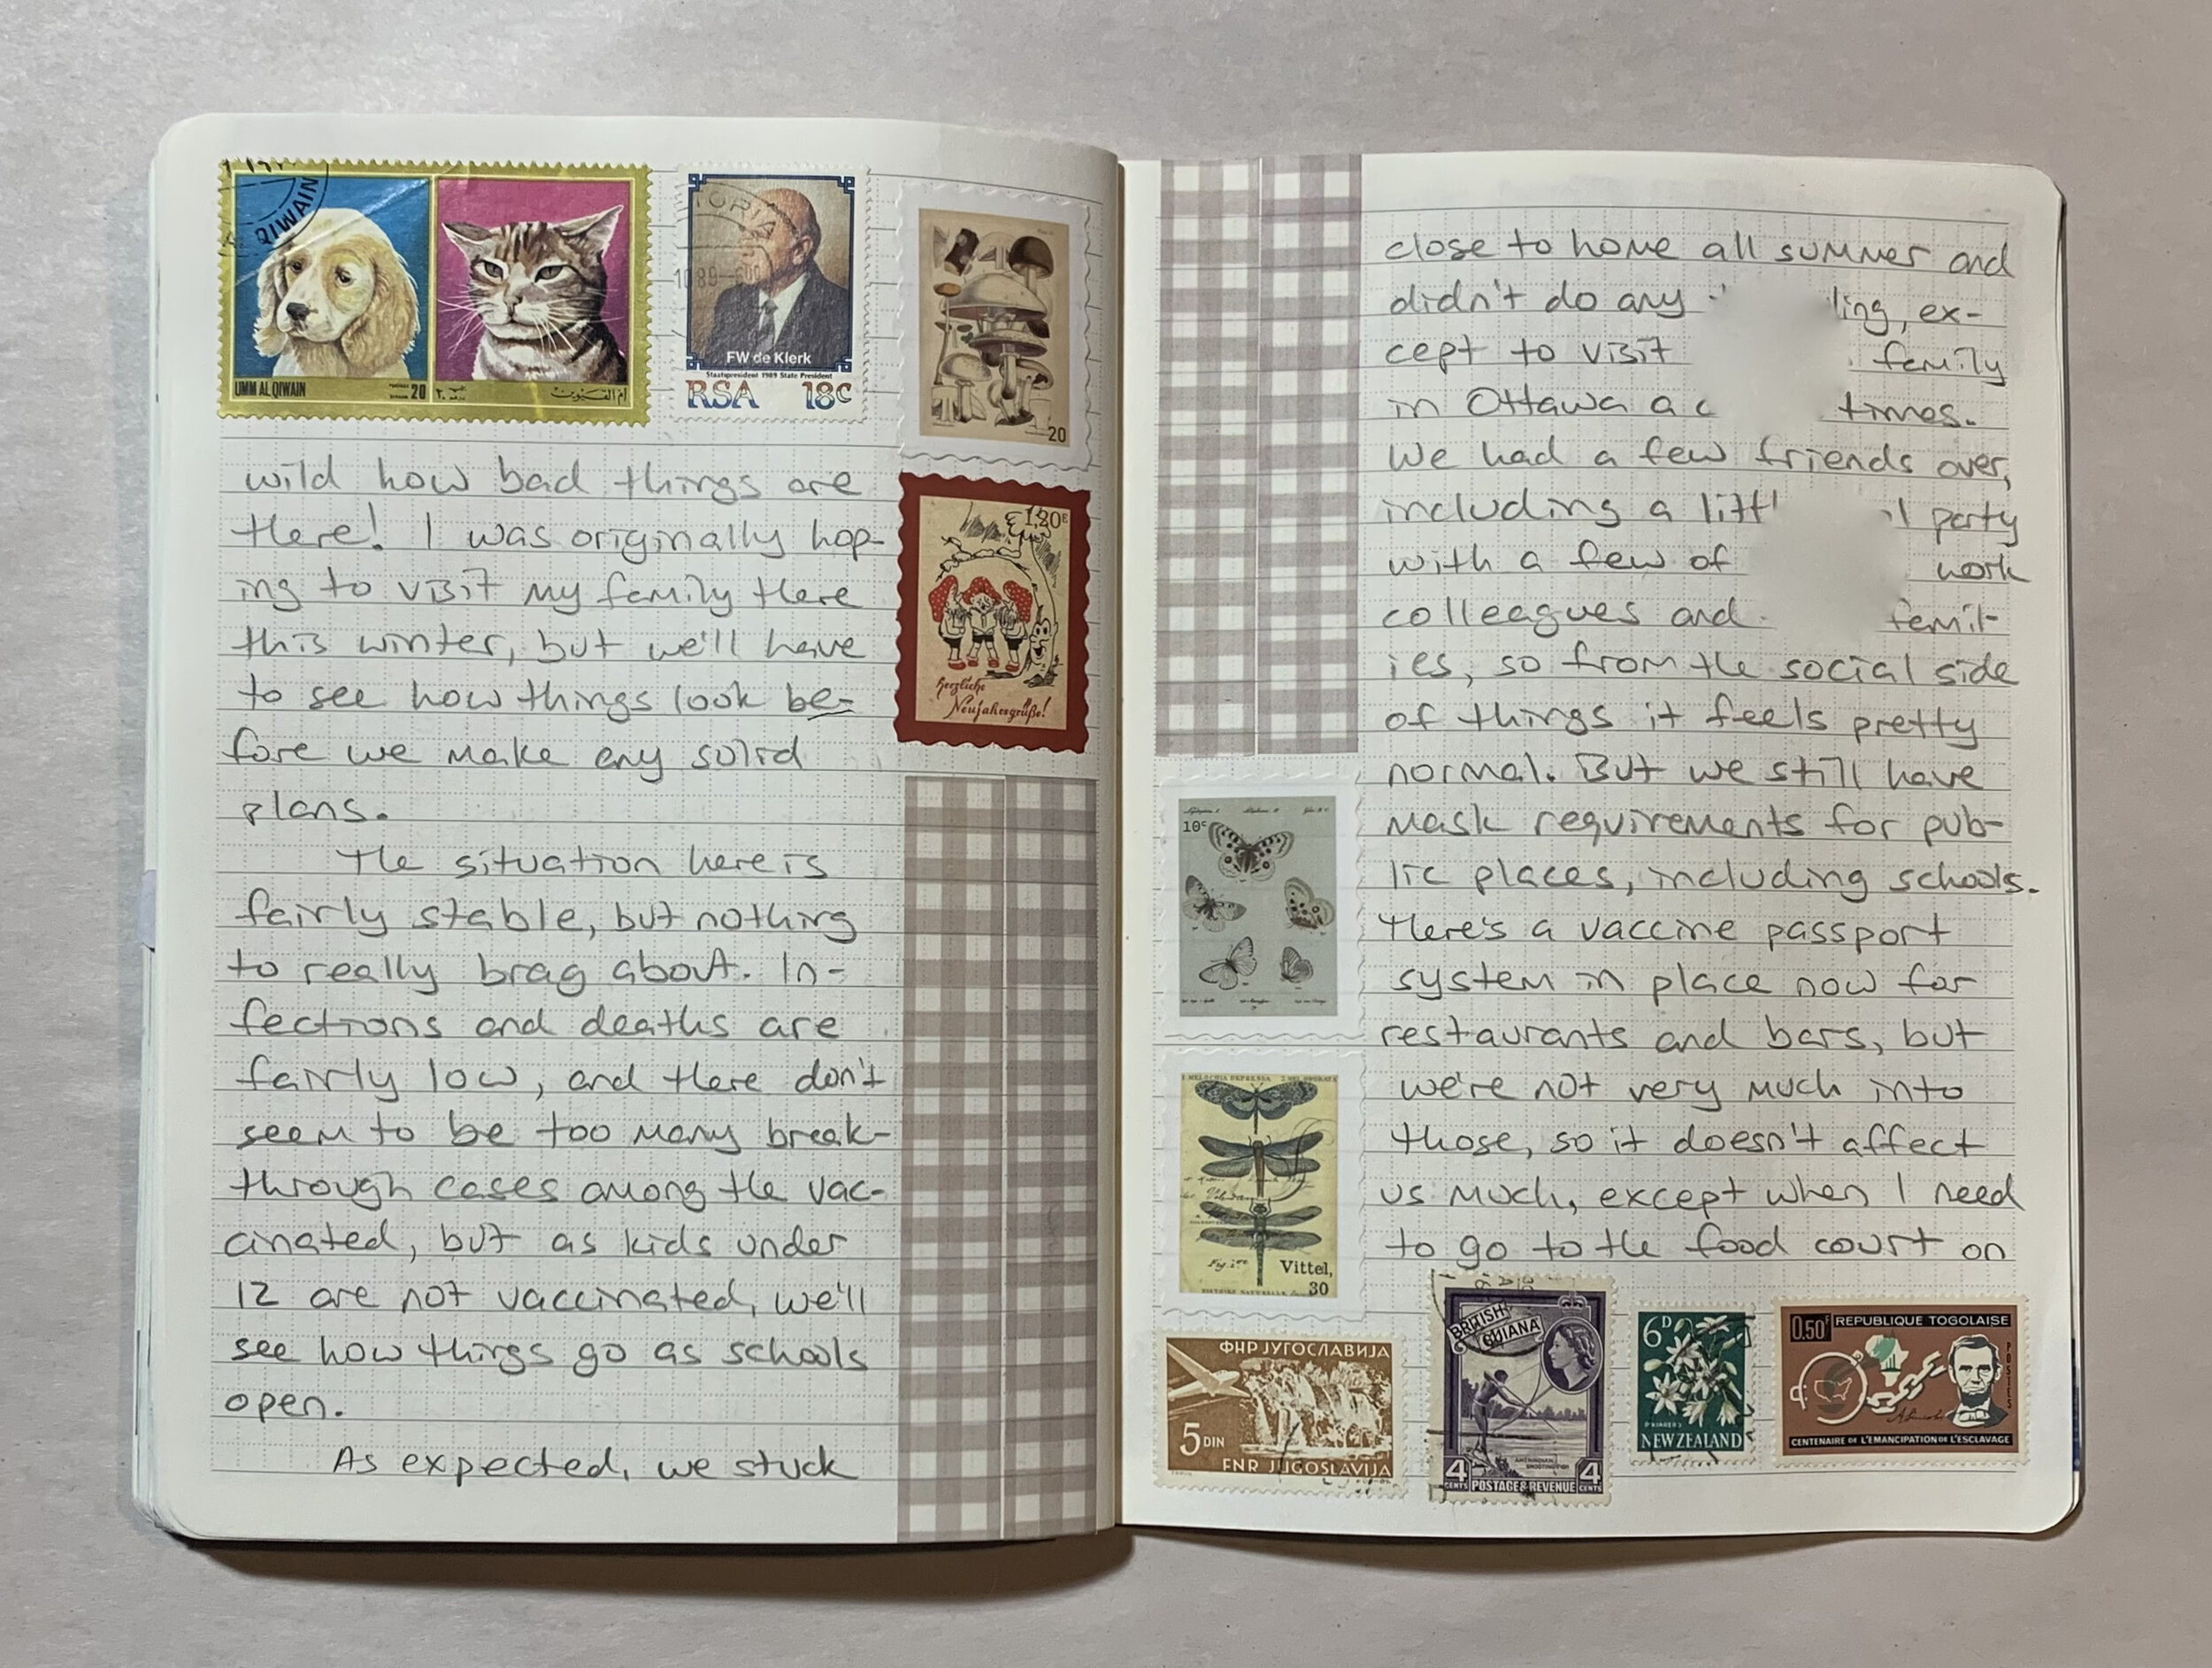 QIWAIN
UMM AL QIWAIN
POSTAGE 20
٢٠
أم القيوين
TORIA
1989
FW de Klerk
Staatspresident 1989 State President
RSA 18c
20
wild how bad things are
there! I was originally hop-
ing to visit my family there
this winter, but we'll have
to see how things look be-
fore we make any solid
plans.
The situation here is
fairly stable, but nothing
to really brag about. In-
fections and deaths are
fairly low, and there don't
seem to be too many break-
through cases among the vac-
cinated, but as kids under
12 are not vaccinated, we'll
see how things go as schools
open.
As expected, we stuck
1,20€
Herzliche
Neujahrsgrüße!
close to home all summer and
didn't do any ling, ex-
cept to visit family
in Ottawa a c times.
We had a few friends over,
including a littl l party
with a few of work
colleagues and famil-
ies, so from the social side
of things it feels pretty
normal. But we still have
mask requirements for pub-
lic places, including schools.
There's a vaccine passport
system in place now for
restaurants and bars, but
we're not very much into
those, so it doesn't affect
us much, except when I need
to go to the food court on
10c
Vittel,
30
ФНР ЈУГОСЛАВИЈА
5 DIN
FNR JUGOSLAVIJA
BRITISH
GUIANA
4 CENTS POSTAGE & REVENUE 4 CENTS
6D
NEW ZEALAND
0.50F REPUBLIQUE TOGOLAISE
POSTES
A. Lincoln
CENTENAIRE DE L'EMANCIPATION DE L'ESCLAVAGE